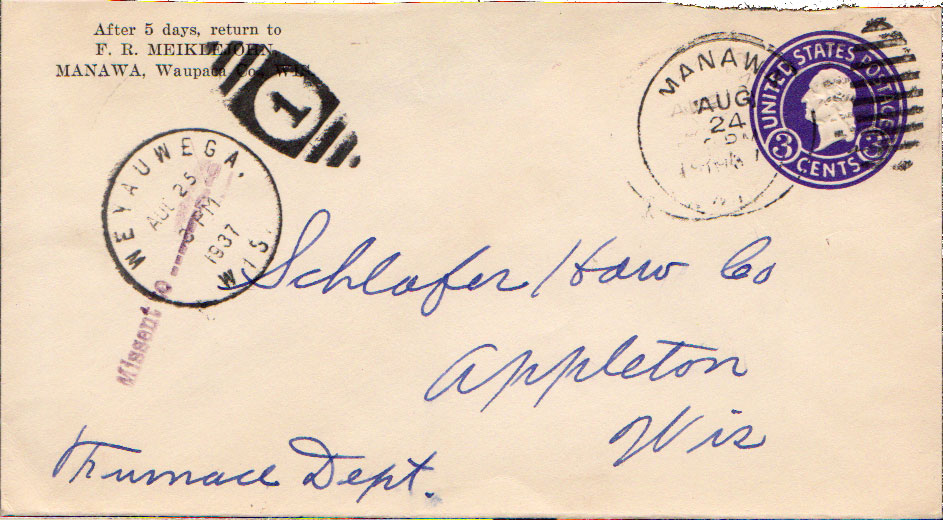 After 5 days, return to
F. R. MEIKLEJOHN
MANAWA, Waupaca Co., WIS.
1
MANAWA
AUG
24
UNITED STATES POSTAGE
3 CENTS 3
WEYAUWEGA,
AUG 25
8 PM
1937
WIS.
Missent to
Schlafer Hdw Co
Appleton
Wis
Furnace Dept.